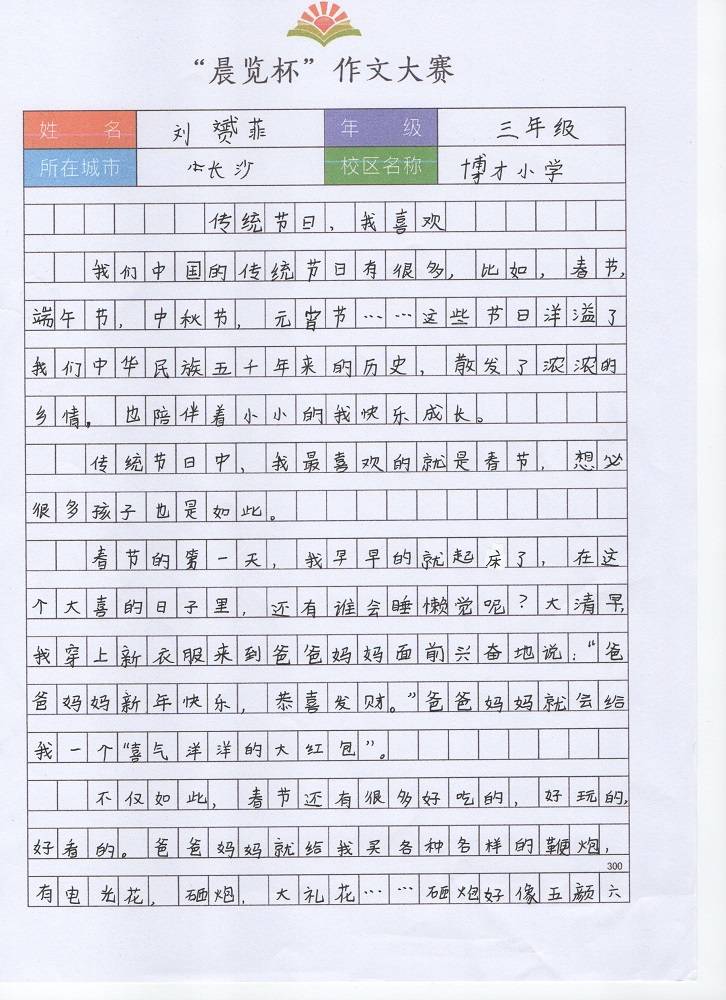 “晨览杯”作文大赛
姓 名 刘赟菲 年 级 三年级
所在城市 长沙 校区名称 博才小学
传统节日，我喜欢
我们中国的传统节日有很多，比如，春节，
端午节，中秋节，元宵节……这些节日洋溢了
我们中华民族五千年来的历史，散发了浓浓的
乡情。也陪伴着小小的我快乐成长。
传统节日中，我最喜欢的就是春节，想必
很多孩子也是如此。
春节的第一天，我早早的就起床了，在这
个大喜的日子里，还有谁会睡懒觉呢？大清早，
我穿上新衣服来到爸爸妈妈面前兴奋地说：“爸
爸妈妈新年快乐，恭喜发财。”爸爸妈妈就会给
我一个“喜气洋洋的大红包”。
不仅如此，春节还有很多好吃的，好玩的，
好看的。爸爸妈妈就给我买各种各样的鞭炮，
300
有电光花，砸炮，大礼花……砸炮好像五颜六